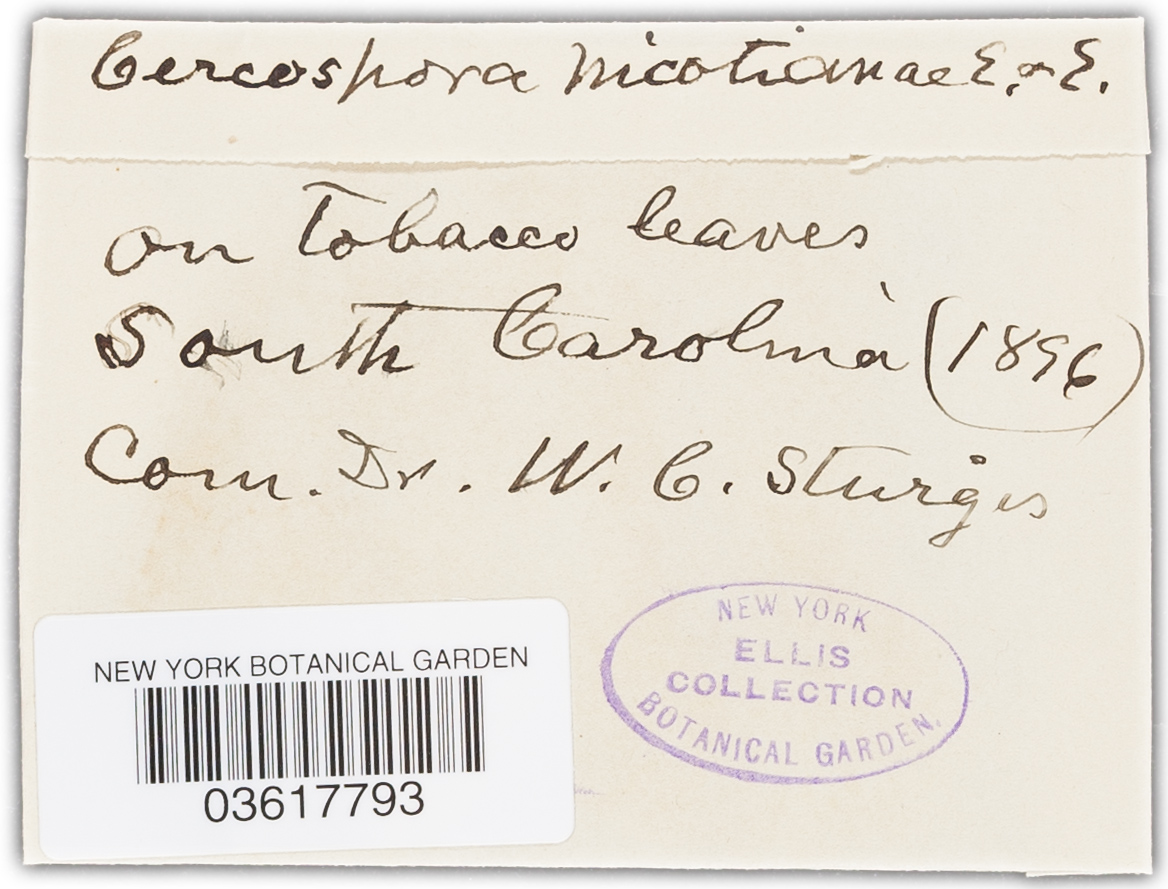 Cercospora Nicotianae E. & E.
on Tobacco leaves
South Carolina (1896)
Com. Dr. W. C. Sturgis
NEW YORK
ELLIS
COLLECTION
BOTANICAL GARDEN.
NEW YORK BOTANICAL GARDEN
03617793